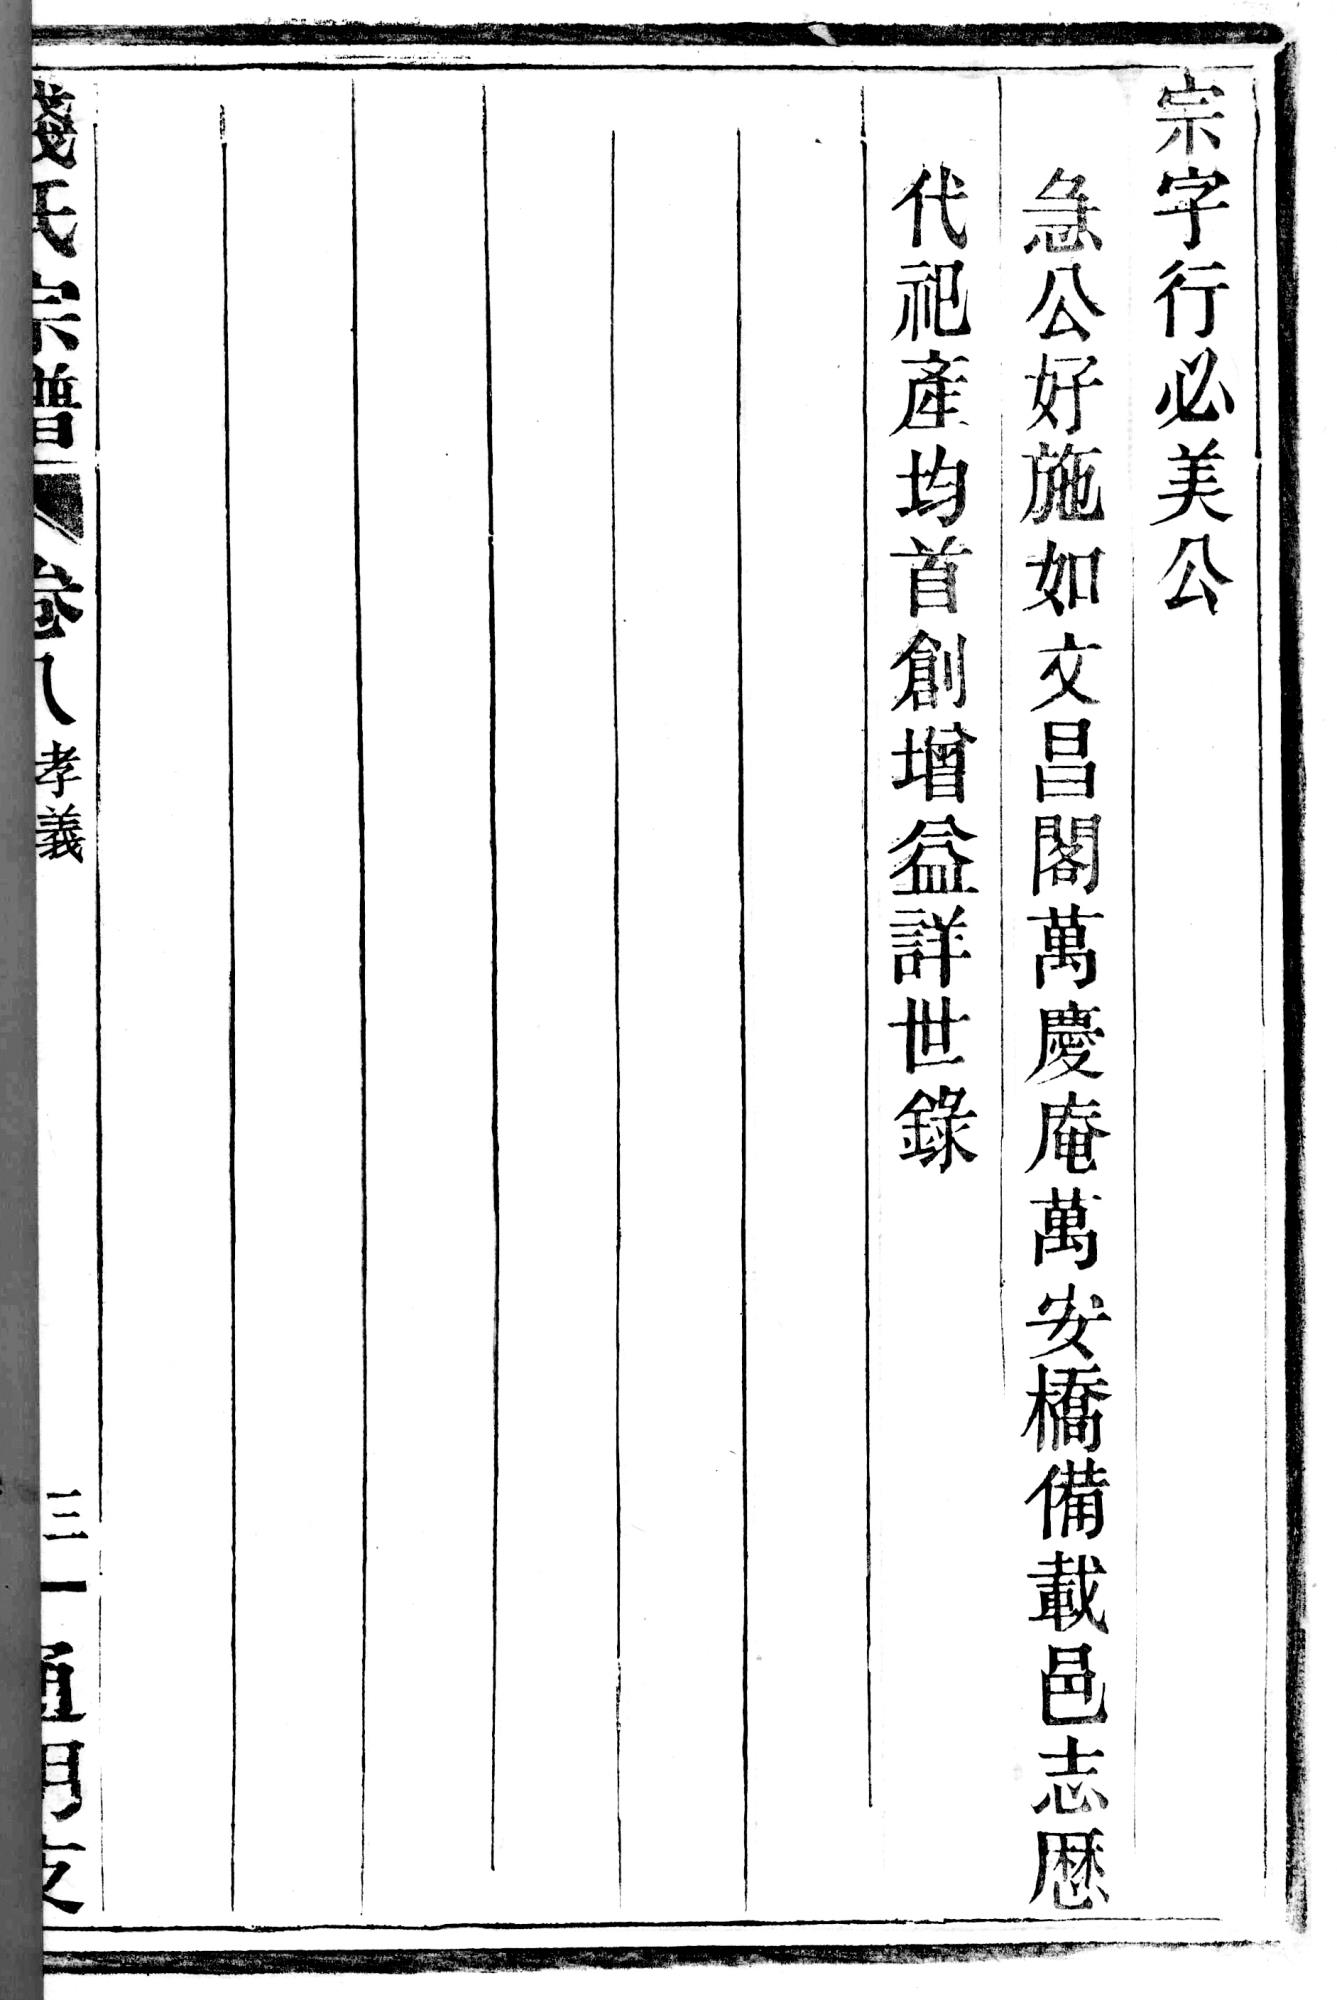 宗字行必美公
急公好施如文昌閣萬慶庵萬安橋備載邑志歷
代祀產均首創增益詳世錄
錢氏宗譜 卷八 孝義 三一 通明支